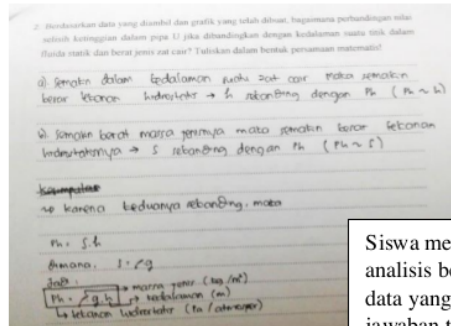 2. Berdasarkan data yang diambil dan grafik yang telah dibuat, bagaimana perbandingan nilai
selisih ketinggian dalam pipa U jika dibandingkan dengan kedalaman suatu titik dalam
fluida statik dan berat jenis zat cair? Tuliskan dalam bentuk persamaan matematis!
a) Semakin dalam kedalaman suatu zat cair maka semakin
besar tekanan hidrostatis → h sebanding dengan Ph (Ph ~ h)
b) Semakin berat massa jenisnya maka semakin besar tekanan
hidrostatisnya → S sebanding dengan Ph (Ph ~ S)
Kesimpulan
karena keduanya sebanding, maka
Ph = S.h
dimana, S = ρg
Jadi :
Ph = ρ.g.h → massa jenis (kg/m³)
→ kedalaman (m)
↳ tekanan hidrostatis (Pa /
Siswa me
analisis be
data yang
jawaban t